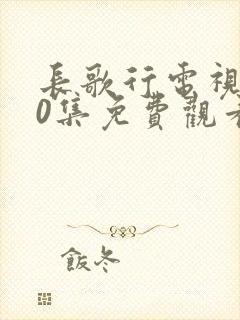 長歌行電視
0集免費觀看
飯冬